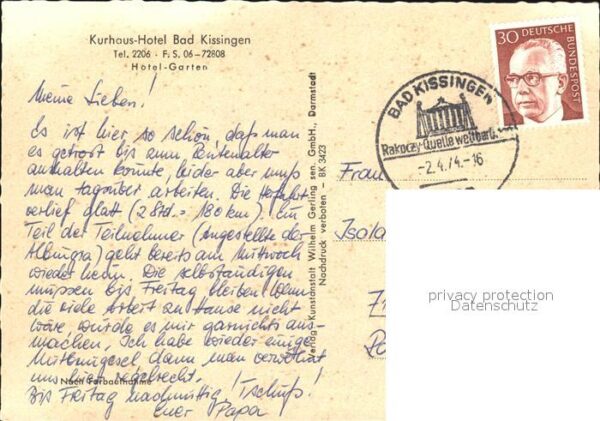 Kurhaus-Hotel Bad Kissingen
Tel. 2206 · F. S. 06-72808
Hotel-Garten
Meine Lieben!
Es ist hier so schön daß man
es getrost bis zum Rentenalter
aushalten könnte, leider aber muß
man tagsüber arbeiten. Die Herfahrt
verlief glatt (2 Std. = 180 km). Ein
Teil der Teilnehmer (Angestellte der
) geht bereits am Mittwoch
wieder heim. Die selbständigen
müssen bis Freitag bleiben. Wenn
die viele Arbeit zu Hause nicht
wäre, würde es mir garnichts aus-
machen. Ich habe wieder einige
dann man verwöhnt
uns hier regelrecht.
Nach Farbaufnahme
Bis Freitag nachmittag! Tschüß!
Euer Papa
Verlag - Kunstanstalt Wilhelm Gerling sen. GmbH., Darmstadt
Nachdruck verboten - BK 3423
BAD KISSINGEN
Rakoczy-Quelle weltber
-2.4.74.-16
30 DEUTSCHE
BUNDESPOST
Frau
Isola
privacy protection
Datenschutz